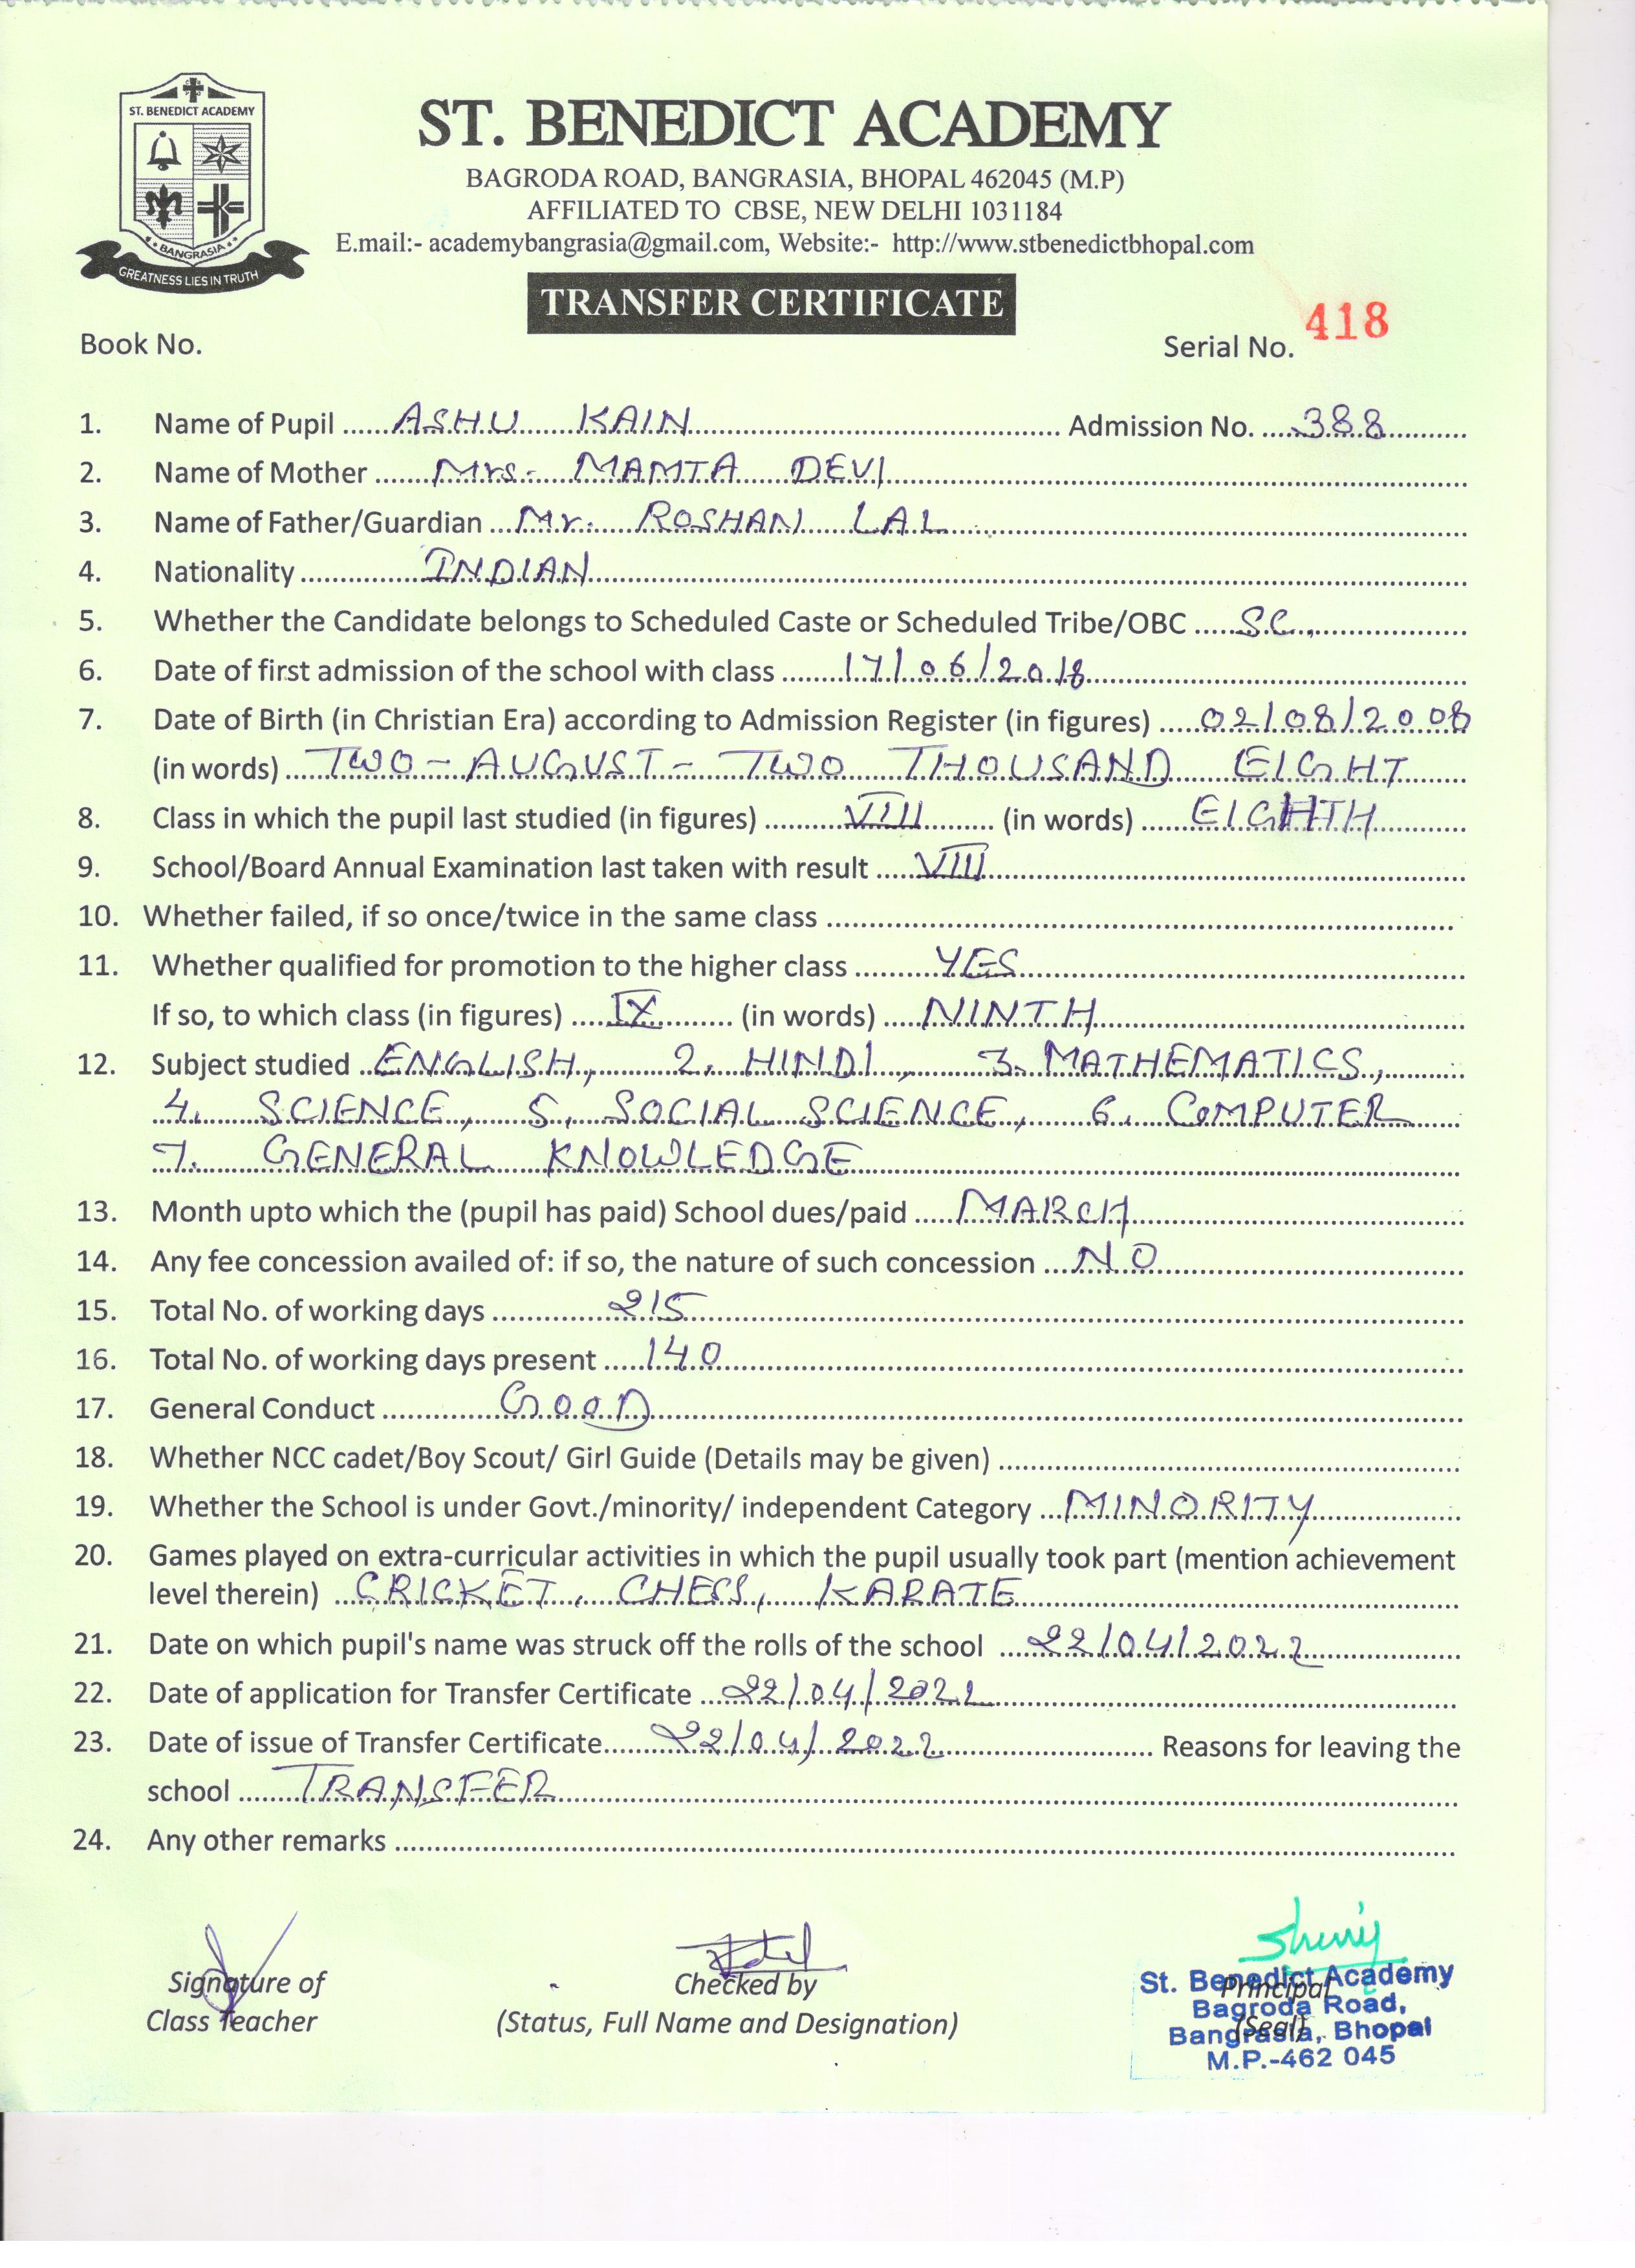 ST. BENEDICT ACADEMY
BANGRASIA
GREATNESS LIES IN TRUTH
ST. BENEDICT ACADEMY
BAGRODA ROAD, BANGRASIA, BHOPAL 462045 (M.P)
AFFILIATED TO CBSE, NEW DELHI 1031184
E.mail:- academybangrasia@gmail.com, Website:- http://www.stbenedictbhopal.com
TRANSFER CERTIFICATE
Book No. Serial No. 418
1. Name of Pupil ASHU KAIN Admission No. 388
2. Name of Mother Mrs. MAMTA DEVI
3. Name of Father/Guardian Mr. ROSHAN LAL
4. Nationality INDIAN
5. Whether the Candidate belongs to Scheduled Caste or Scheduled Tribe/OBC SC,
6. Date of first admission of the school with class 17/06/2018
7. Date of Birth (in Christian Era) according to Admission Register (in figures) 02/08/2008
(in words) TWO - AUGUST - TWO THOUSAND EIGHT
8. Class in which the pupil last studied (in figures) VIII (in words) EIGHTH
9. School/Board Annual Examination last taken with result VIII
10. Whether failed, if so once/twice in the same class
11. Whether qualified for promotion to the higher class YES
If so, to which class (in figures) IX (in words) NINTH
12. Subject studied ENGLISH, 2. HINDI, 3. MATHEMATICS,
4. SCIENCE, 5. SOCIAL SCIENCE, 6. COMPUTER
7. GENERAL KNOWLEDGE
13. Month upto which the (pupil has paid) School dues/paid MARCH
14. Any fee concession availed of: if so, the nature of such concession NO
15. Total No. of working days 215
16. Total No. of working days present 140
17. General Conduct GOOD
18. Whether NCC cadet/Boy Scout/ Girl Guide (Details may be given)
19. Whether the School is under Govt./minority/ independent Category MINORITY
20. Games played on extra-curricular activities in which the pupil usually took part (mention achievement
level therein) CRICKET, CHESS, KARATE
21. Date on which pupil's name was struck off the rolls of the school 22/04/2022
22. Date of application for Transfer Certificate 22/04/2022
23. Date of issue of Transfer Certificate 22/04/2022 Reasons for leaving the
school TRANSFER
24. Any other remarks
Signature of Checked by Principal
Class Teacher (Status, Full Name and Designation) (Seal)
St. Benedict Academy
Bagroda Road,
Bangrasia, Bhopal
M.P.-462 045